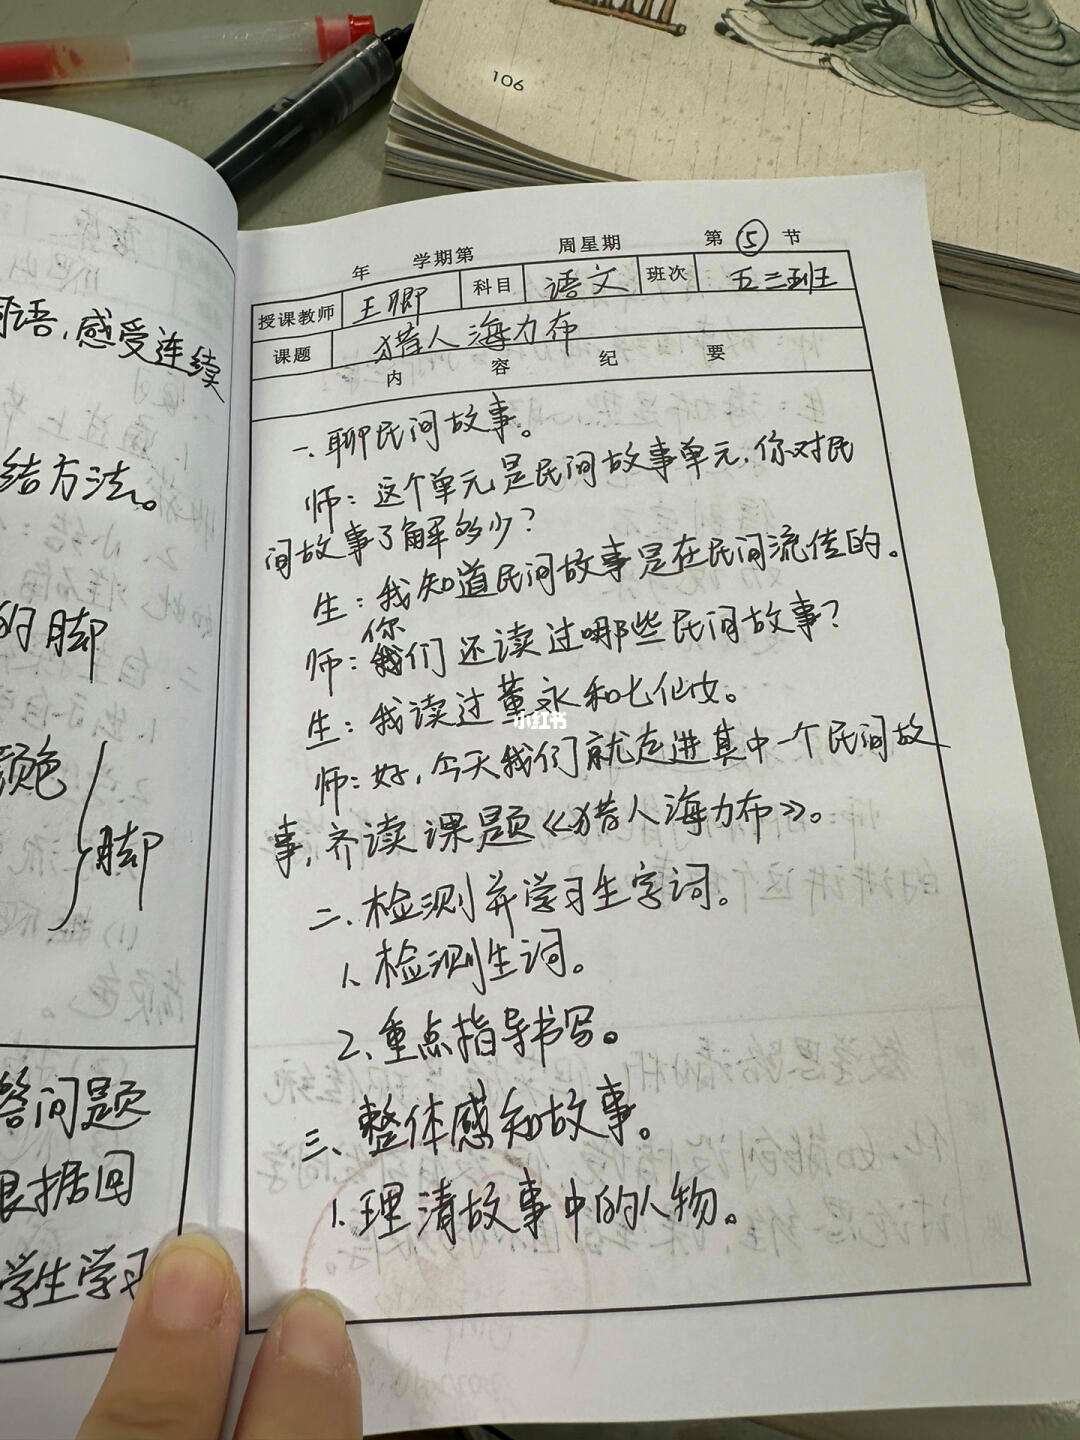 106
词语，感受连续
结方法。
的脚
颜色
脚
答问题
根据回
学生学习
年 学期第 周星期 第 ⑤ 节
授课教师 王卿 科目 语文 班次 五三班
课题 猎人海力布
内容纪要
一、聊民间故事。
师：这个单元是民间故事单元，你对民
间故事了解多少？
生：我知道民间故事是在民间流传的。
你
师：我们还读过哪些民间故事？
生：我读过董永和七仙女。
小红书
师：好，今天我们就走进其中一个民间故
事，齐读课题《猎人海力布》。
二、检测并学习生字词。
1、检测生词。
2、重点指导书写。
三、整体感知故事。
1、理清故事中的人物。